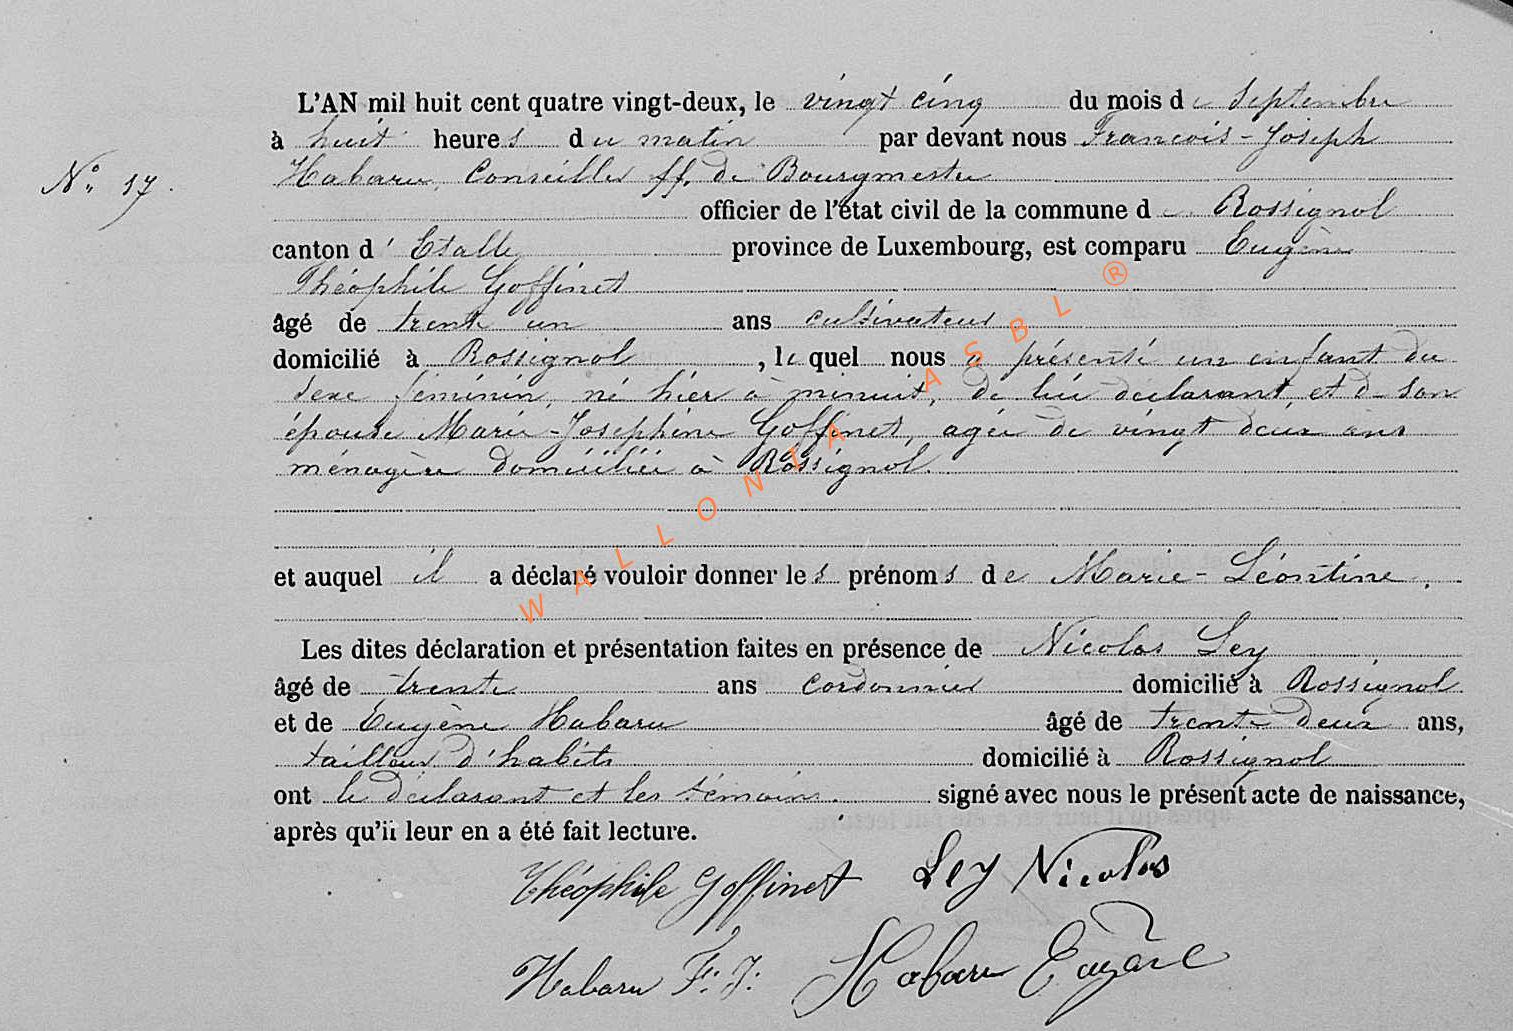 L'AN mil huit cent quatre vingt-deux, le vingt cinq du mois de Septembre
à huit heures du matin par devant nous Francois-Joseph
N° 17. Habaru, Conseiller ff. de Bourgmestre
officier de l'état civil de la commune de Rossignol
canton d'Etalle province de Luxembourg, est comparu Eugène
Théophile Goffinet
âgé de trente un ans cultivateur
domicilié à Rossignol, lequel nous a présenté un enfant du
sexe féminin, né hier à minuit, de lui déclarant, et de son
épouse Marie-Josephine Goffinet, agée de vingt deux ans
ménagère domiciliée à Rossignol.
et auquel il a déclaré vouloir donner les prénoms de Marie-Léontine.
Les dites déclaration et présentation faites en présence de Nicolas Ley
âgé de trente ans cordonnier domicilié à Rossignol
et de Eugène Habaru âgé de trente deux ans,
tailleur d'habits domicilié à Rossignol
ont le déclarant et les témoins. signé avec nous le présent acte de naissance,
après qu'il leur en a été fait lecture.
Théophile Goffinet Ley Nicolas
Habaru F: J: Habaru Eugène
WALLONIA ASBL ®